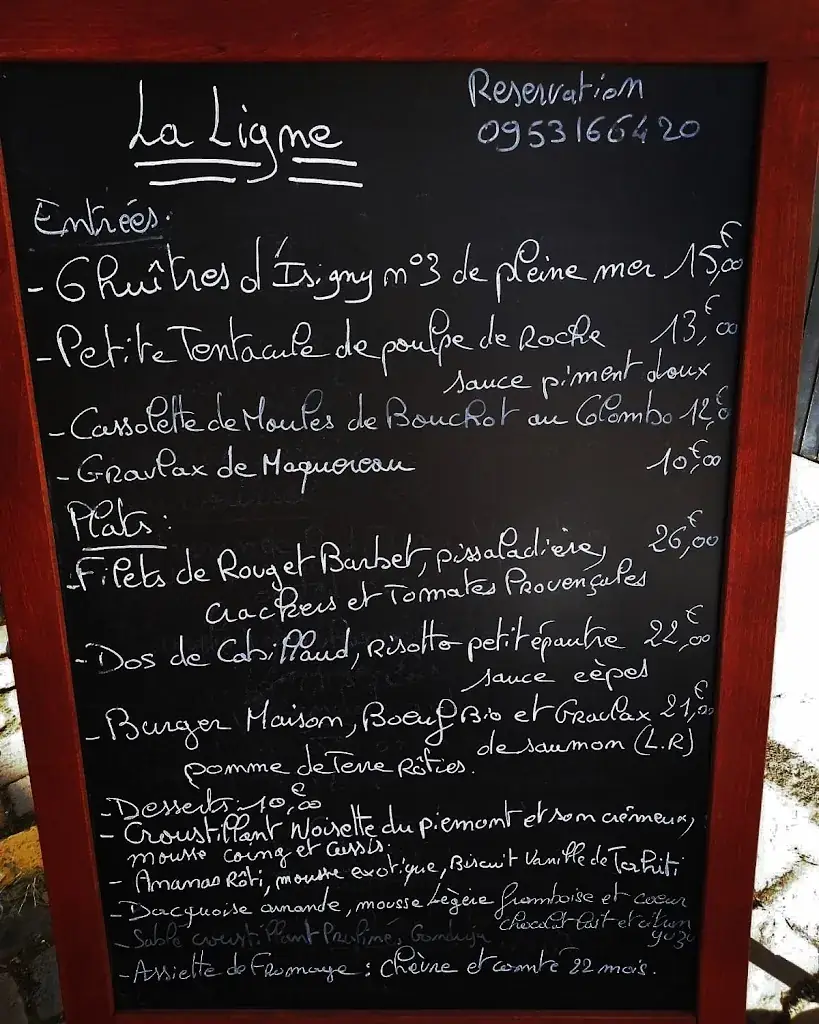 La Ligne
Reservation
0953166420
Entrées:
- 6 huîtres d'Isigny n°3 de pleine mer 15,00€
- Petite Tentacule de poulpe de Roche 13,00€
sauce piment doux
- Cassolette de Moules de Bouchot au Colombo 12,€
- Gravlax de Maquereau 10,00€
Plats:
- Filets de Rouget Barbet, pissaladière, 26,00€
crackers et Tomates Provençales
- Dos de Cabillaud, Risotto petit épautre 22,00€
sauce cèpes
- Burger Maison, Boeuf Bio et Gravlax 21,00€
de saumon (L.R)
pomme de Terre Rôties.
- Desserts: 10,00€
- Croustillant Noisette du piemont et son crémeux,
mousse coing et cassis.
- Ananas Rôti, mousse exotique, Biscuit Vanille de Tahiti
- Dacquoise amande, mousse légère framboise et coeur
chocolat lait et citron
yuzu
- Sablé croustillant Praliné, Gianduja
- Assiette de Fromage: chèvre et comté 22 mois.